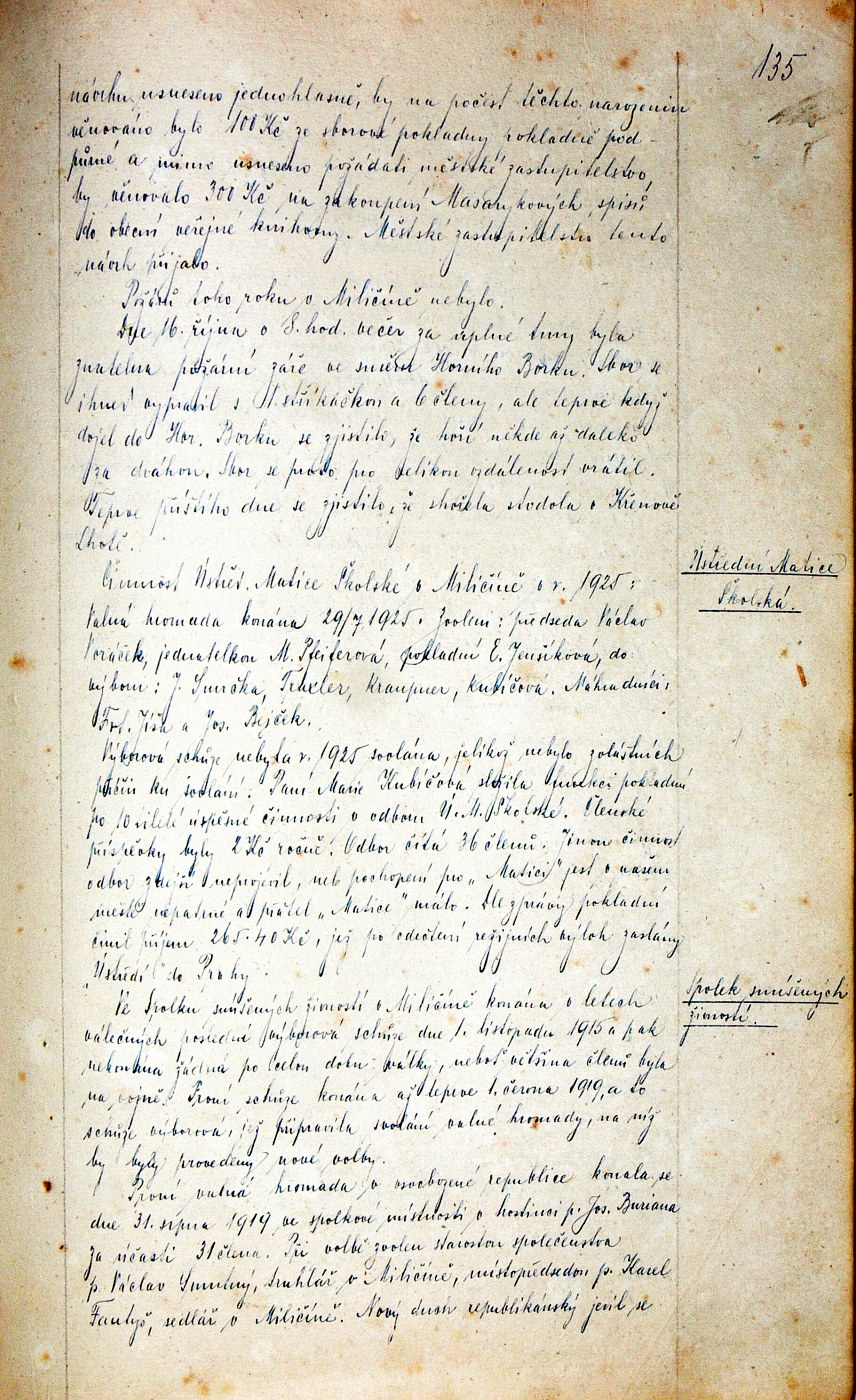 135
návrhu usneseno jednohlasně, by na počest těchto narozenin
věnováno bylo 100 Kč ze sborové pokladny pokladně pod-
půrné a mimo usneseno požádati městské zastupitelstvo,
by věnovalo 300 Kč na zakoupení Masarykových spisů
do obecní veřejné knihovny. Městské zastupitelstvo tento
návrh přijalo.
Požárů toho roku v Miličíně nebylo.
Dne 16. října o 8. hod. večer za úplné tmy byla
znatelna požární záře ve směru Horního Borku. Sbor se
ihned vypravil s stříkačkou a 6 členy, ale teprve když
dojel do Hor. Borku se zjistilo, že hoří někde až daleko
za dráhou. Sbor se proto pro velikou vzdálenost vrátil.
Teprve příštího dne se zjistilo, že shořela stodola v Křenově
Lhotě.
Ústřední Matice
Školská.
Činnost Ústřed. Matice Školské v Miličíně v r. 1925:
Valná hromada konána 29/7 1925. Zvoleni: předseda Václav
Voráček, jednatelkou M. Pfeiferová, pokladní E. Jenšíková, do
výboru: J. Smrčka, Traxler, Kraupner, Kubíčová. Náhradníci:
Frt. Jíša a Jos. Bejček.
Výborová schůze nebyla r. 1925 svolána, jelikož nebylo zvláštních
příčin ku svolání. Paní Marie Kubíčová složila funkci pokladní
po 10ti leté úspěšné činnosti v odboru Ú. M. Školské. Členské
příspěvky byly 2 Kč ročně. Odbor čítá 36 členů. Jinou činnost
odbor zdejší neprojevil, neb pochopení pro „Matici" jest v našem
městě nepatrné a přátel „Matice" málo. Dle zprávy pokladní
činil příjem 265.40 Kč, jež po odečtení režijních výloh zaslány
„Ústředí" do Prahy.
Spolek smíšených
živností.
Ve Spolku smíšených živností v Miličíně konána v letech
válečných poslední výborová schůze dne 1. listopadu 1915 a pak
nekonána žádná po celou dobu války, neboť většina členů byla
na vojně. První schůze konána až teprve 1. června 1919, a to
schůze výborová, jež připravila svolání valné hromady, na níž
by byly provedeny nové volby.
První valná hromada v osvobozené republice konala se
dne 31. srpna 1919 ve spolkové místnosti v hostinci p. Jos. Buriana
za účasti 31 člena. Při volbě zvolen starostou společenstva
p. Václav Smutný, truhlář v Miličíně, místopředsedou p. Karel
Fantyš, sedlář v Miličíně. Nový duch republikánský jevil se